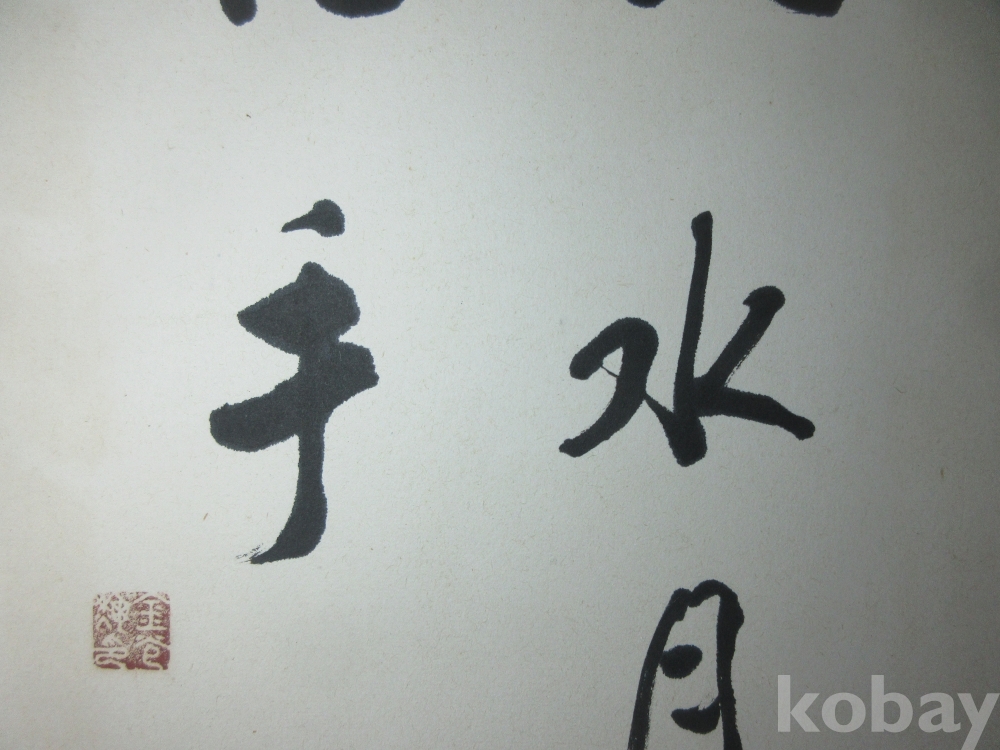 水月
手
kobay